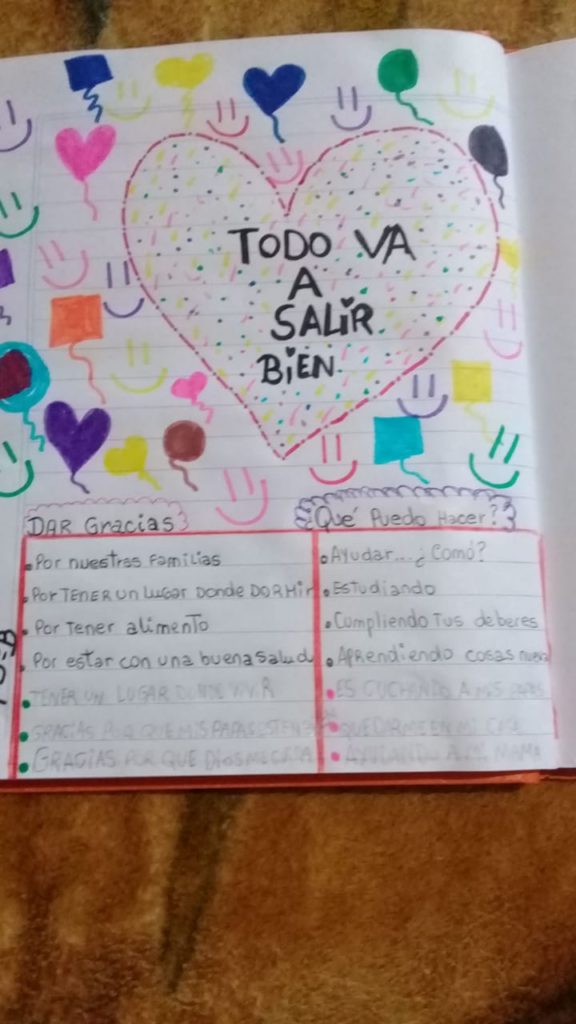 TODO VA
A
SALIR
BIEN.
DAR Gracias
Por nuestras Familias
Por TENER un Lugar Donde DORMir
Por Tener alimento
Por estar con una buena salud
TENER UN LUGAR DONDE VIVIR
GRACIAS POR QUE MIS PAPAS ESTEN
GRACIAS POR QUE DIOS ME
¿Qué Puedo Hacer?
Ayudar... ¿Comó?
Estudiando
Cumpliendo Tus deberes
Aprendiendo cosas nueva
ESCUCHANDO A MIS PAPAS
QUEDARME EN MI CASA
AYUDANDO A MI MAMA